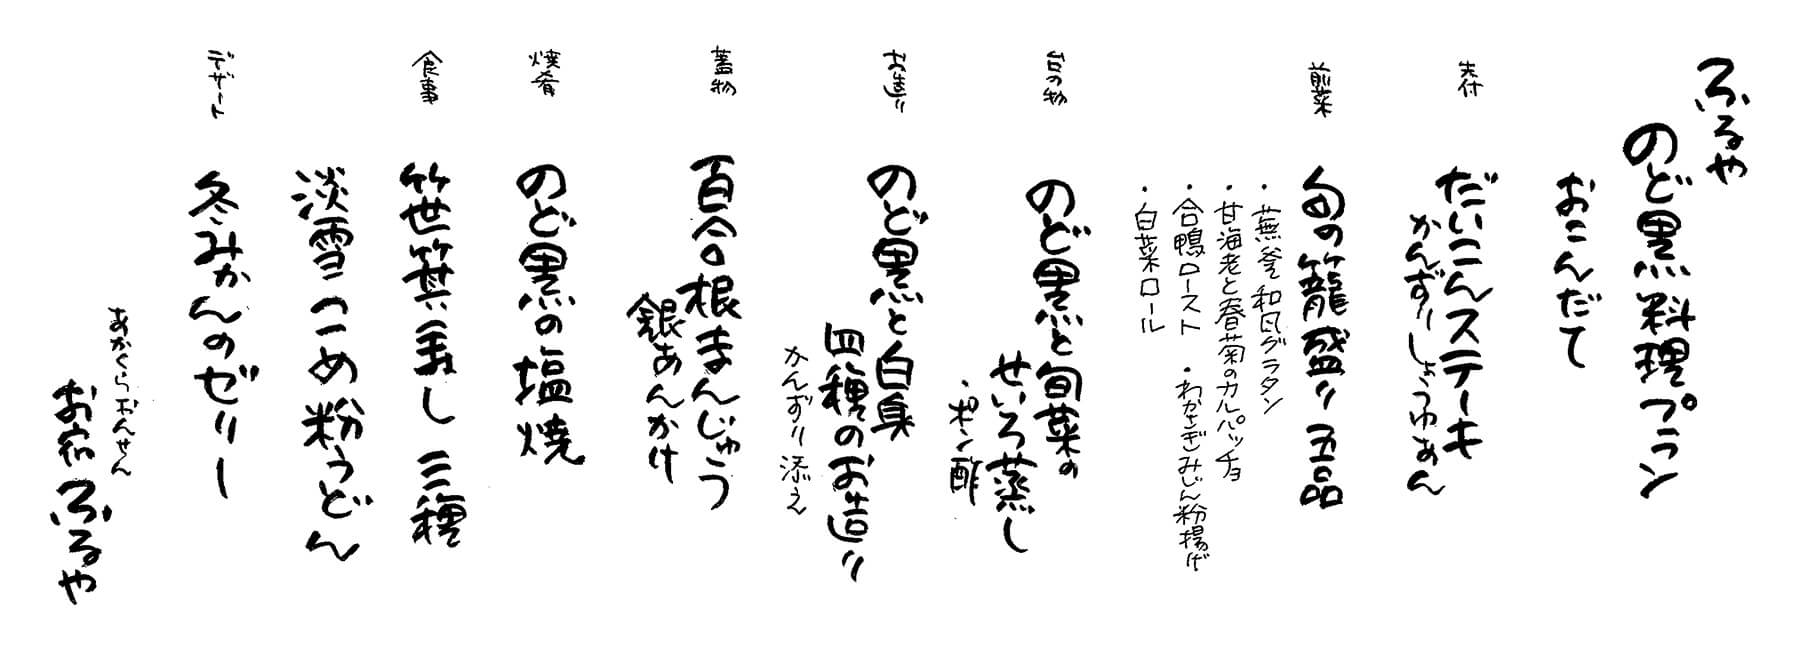 ふるや
のど黒料理プラン
おこんだて
先付
だいこんステーキ
かんずりしょうゆあん
前菜
旬の籠盛り五品
・蕪釜和風グラタン
・甘海老と春菊のカルパッチョ
・合鴨ロースト ・わかさぎみじん粉揚げ
・白菜ロール
台の物
のど黒と旬菜の
せいろ蒸し
・ポン酢
お造り
のど黒と白身
四種のお造り
かんずり添え
蓋物
百合根まんじゅう
銀あんかけ
焼肴
のど黒の塩焼
食事
笹葉寿し 三種
淡雪こめ粉うどん
デザート
冬みかんのゼリー
あかくらおんせん
お宿ふるや